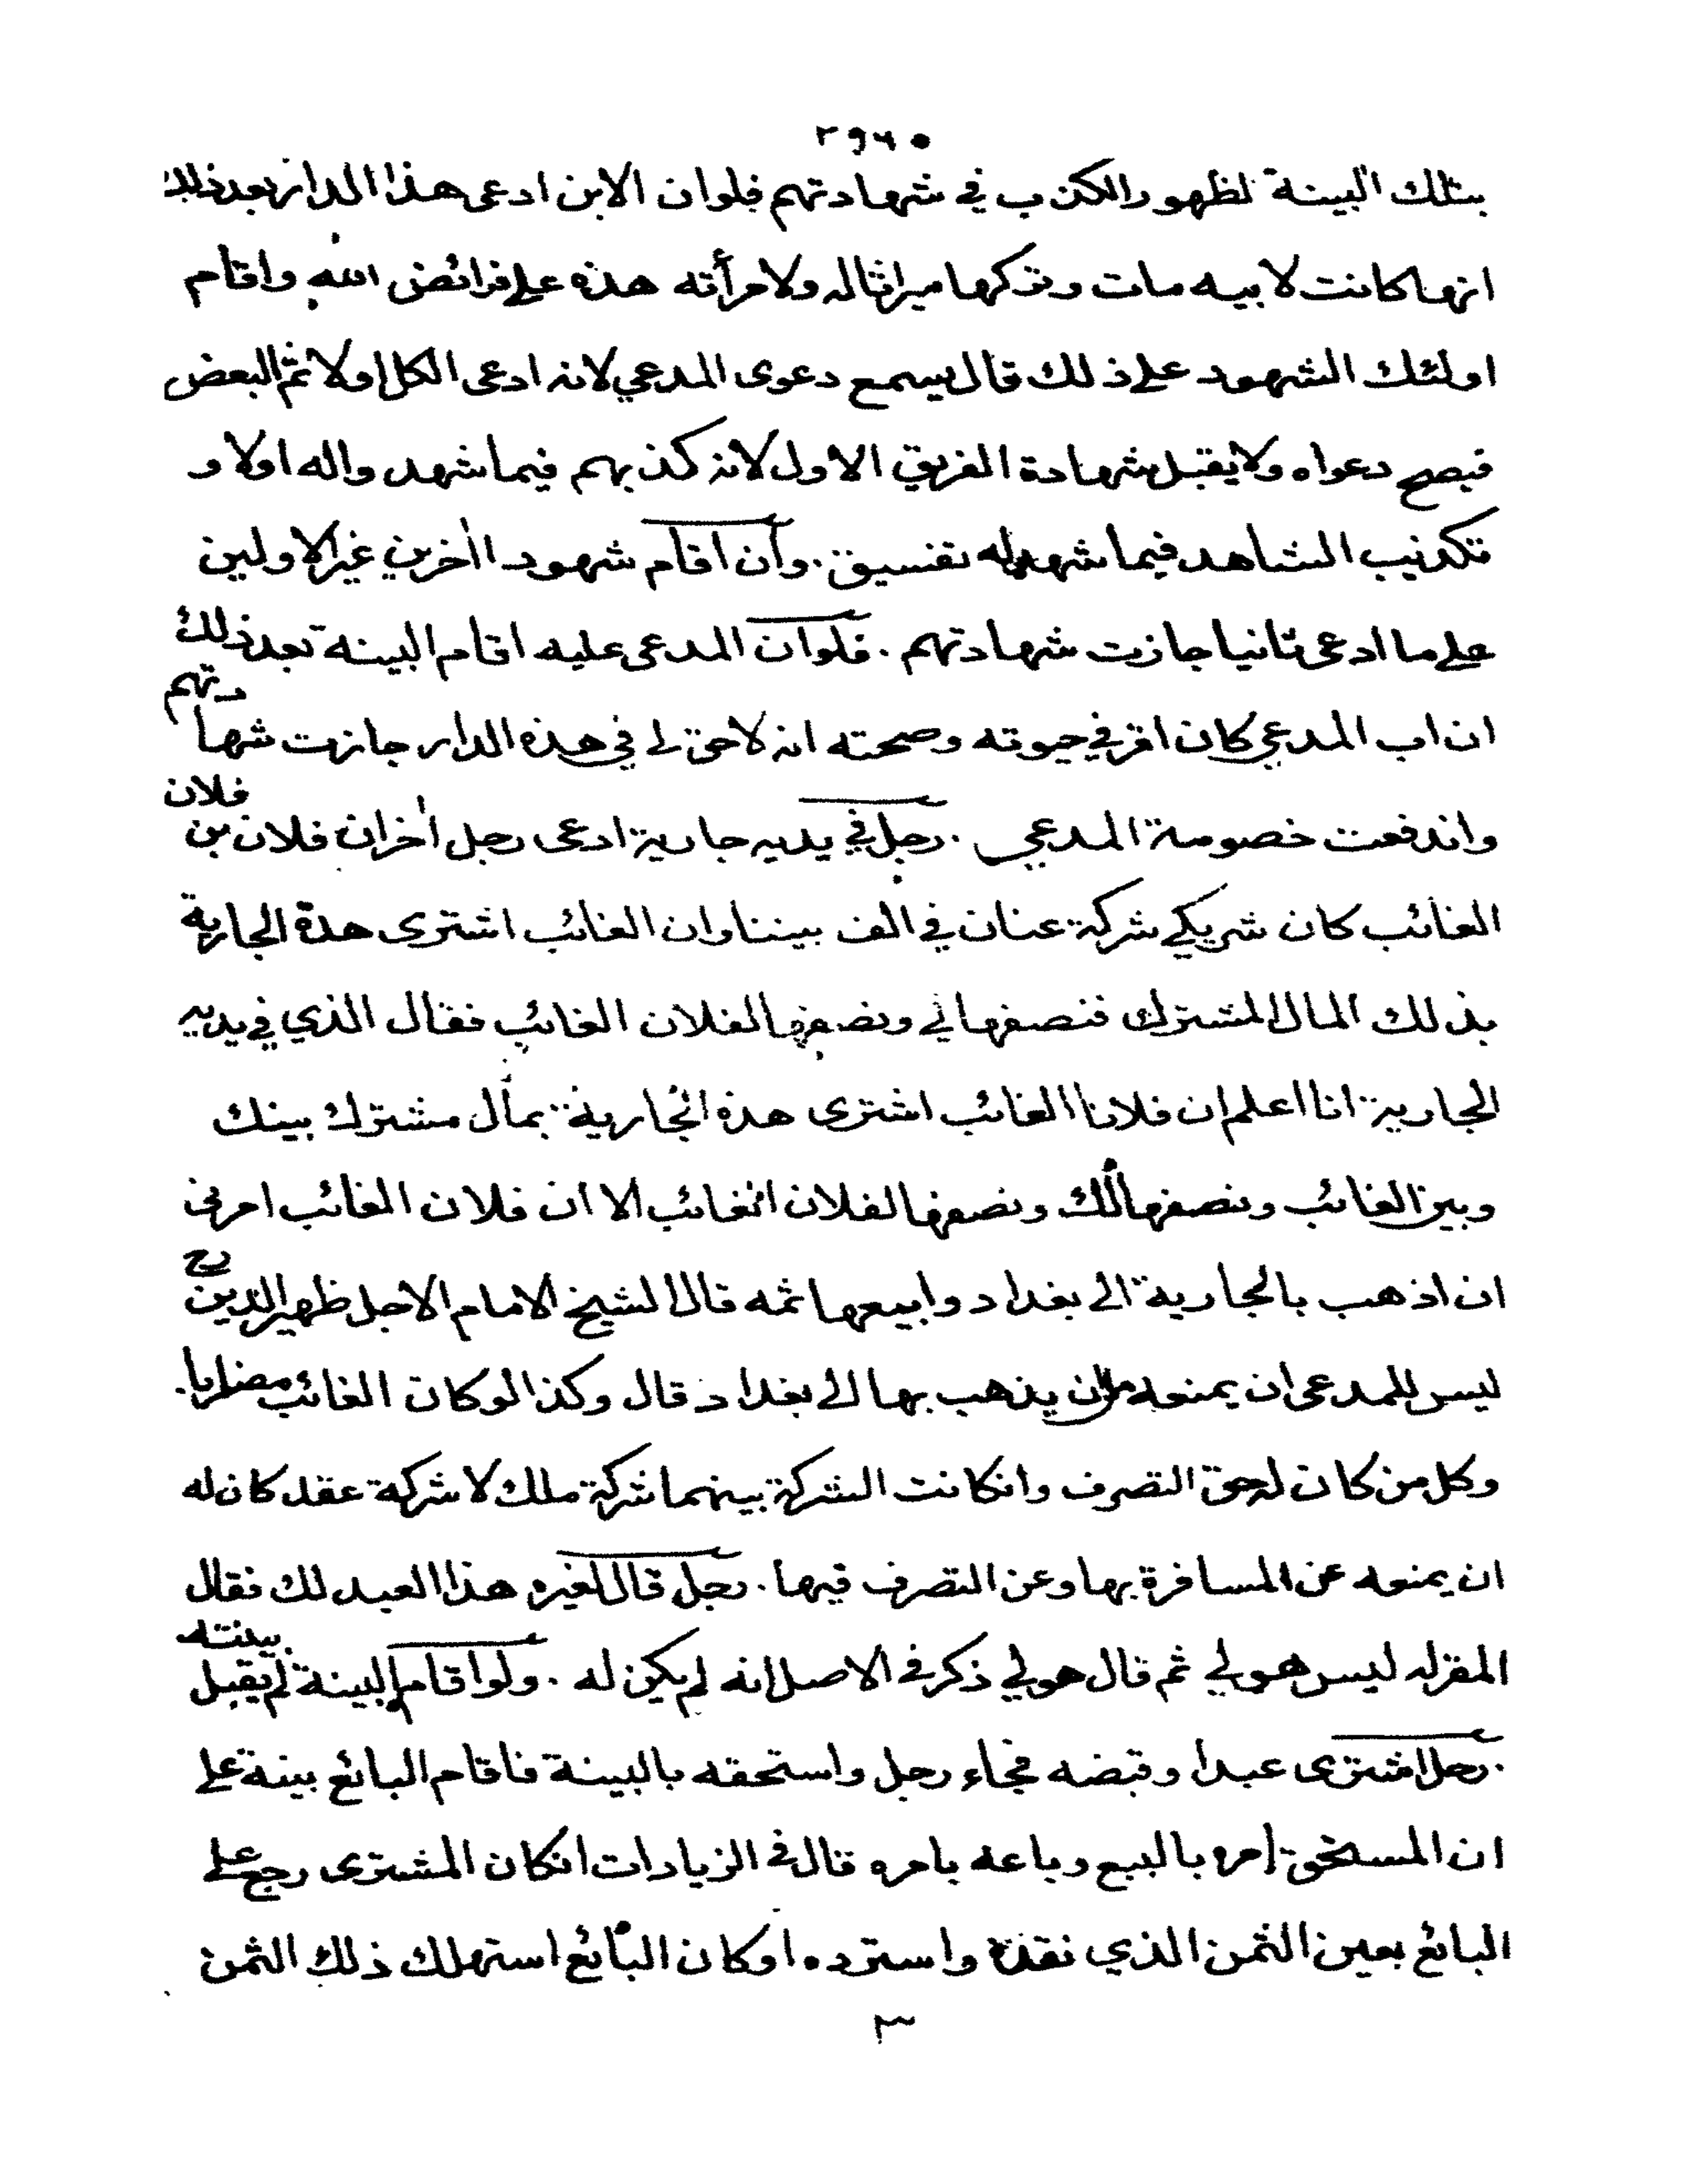 ٢٩٦٥
بتلك البينة لظهور الكذب في شهادتهم فلوان الابن ادعى هذا الدار بعد ذلك
انها كانت لابيه مات وتركها ميراثا له ولامرأته هذه على فرائض الله واقام
اولئك الشهود على ذلك قال يسمع دعوى المدعي لانه ادعى الكل اولا ثم البعض
فيصح دعواه ولا يقبل شهادة الفريق الاول لانه كذبهم فيما شهدوا له اولا و
تكذيب الشاهد فيما شهد له تفسيق . وان اقام شهودا اخرين غير الاولين
على ما ادعى ثانيا جازت شهادتهم . فلوان المدعى عليه اقام البينة بعد ذلك
ان اب المدعي كان اقر في حيوته وصحته انه لا حق لي في هذه الدار جازت شهادتهم
واندفعت خصومة المدعي . رجل في يديه جارية ادعى رجل اخر ان فلان بن فلان
الغائب كان شريكي شركة عنان في الف بيننا وان الغائب اشترى هذة الجارية
بذلك المال المشترك فنصفها لي ونصفها لفلان الغائب فقال الذي في يديه
الجارية انا اعلم ان فلانا الغائب اشترى هذه الجارية بمال مشترك بينك
وبين الغائب ونصفها لك ونصفها لفلان الغائب الا ان فلان الغائب امرني
ان اذهب بالجارية الى بغداد وابيعها ثمه قال الشيخ الامام الاجل ظهير الدين رح
ليس للمدعى ان يمنعه من ان يذهب بها الى بغداد قال وكذا لو كان الغائب مضاربا .
وكل من كان له حق التصرف وانكانت الشركة بينهما شركة ملك لا شركة عقد كان له
ان يمنعه عن المسافرة بها وعن التصرف فيها . رجل قال لغيره هذا العبد لك فقال
المقر له ليس هو لي ثم قال هو لي ذكر في الاصل انه لم يكن له . ولو اقام البينة لم يقبل بينته
. رجل اشترى عبدا وقبضه فجاء رجل واستحقه بالبينة فاقام البائع بينة على
ان المستحق امره بالبيع وباعه بامره قال في الزيادات انكان المشترى رجع على
البائع بعين الثمن الذي نقده واسترده او كان البائع استهلك ذلك الثمن